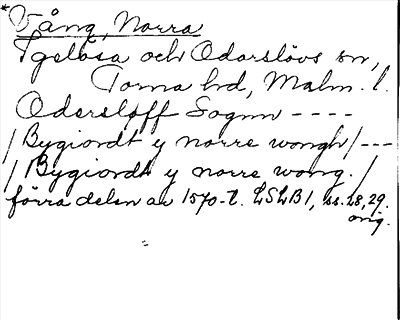 *Vång, Norra
Igelösa och Odarslövs sn,
Torna hd, Malm. l.
Oderslöff Sognn ----
/ Bygiordt y norre wongh / ---
/ Bygiordt y norre wong. /
förra delen av 1570-t. LSLB1, ss. 28, 29.
orig.